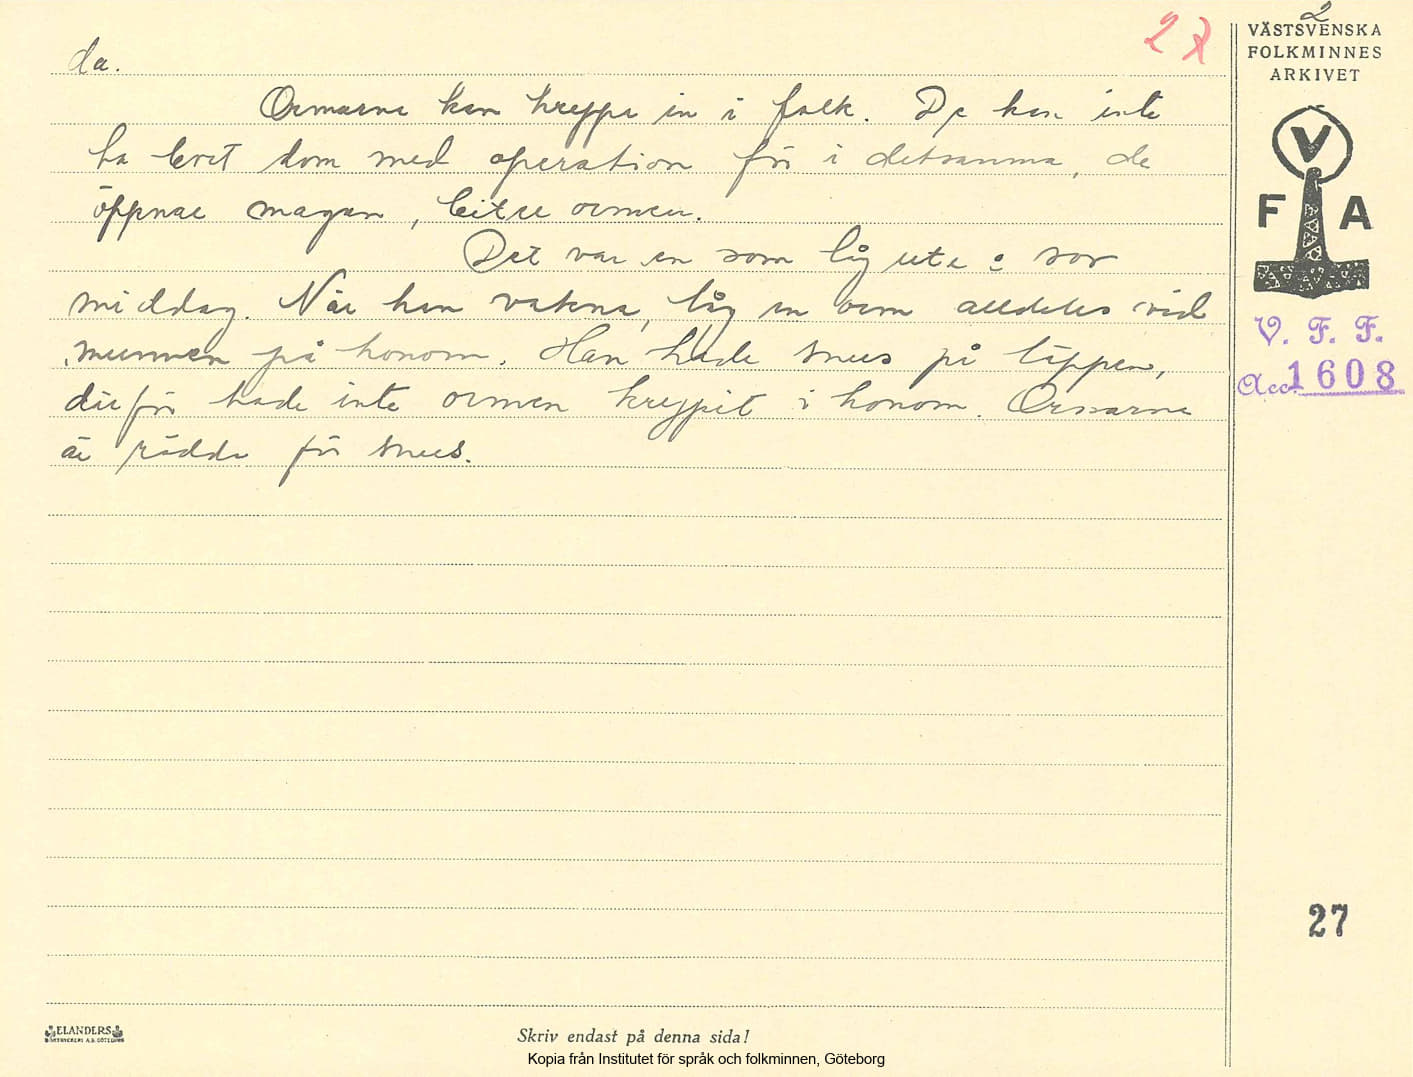 2
VÄSTSVENSKA
FOLKMINNES
ARKIVET
da.
Ormarne kan kryppa in i folk. De kan inte
ta bort dom med operation för i detsamma, de
öppnar magan, biter ormen.
Det var en som låg ute å sov
middag. När han vakna, låg en orm alldeles vid
munnen på honom. Han hade snus på läppen,
därför hade inte ormen kryppit i honom. Ormarne
är rädda för snus.
V
F A
V. F. F.
Acc. 1608
27
ELANDERS
Skriv endast på denna sida!
Kopia från Institutet för språk och folkminnen, Göteborg